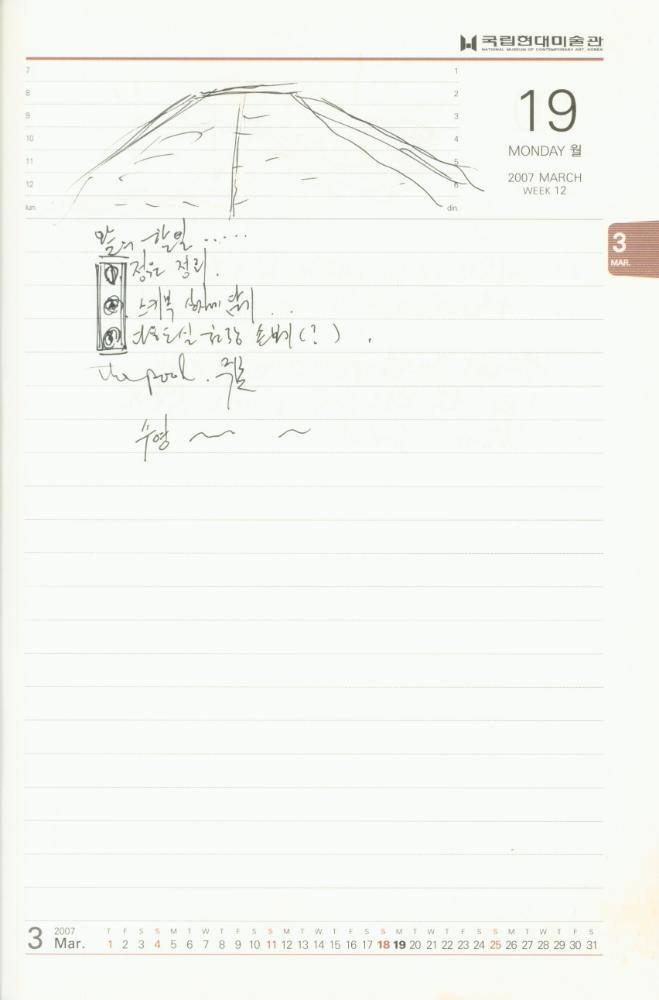 국립현대미술관
NATIONAL MUSEUM OF CONTEMPORARY ART, KOREA
7 1
8 2
9 3
10 4
11 5
12 6
lun. din.
19
MONDAY 월
2007 MARCH
WEEK 12
3
MAR.
오늘의 할일 .....
① 정원 정리.
② 스키복
③
The pool.
수영 ~ ~
3 2007 Mar.
T F S S M T W T F S S M T W T F S S M T W T F S S M T W T F S
1 2 3 4 5 6 7 8 9 10 11 12 13 14 15 16 17 18 19 20 21 22 23 24 25 26 27 28 29 30 31